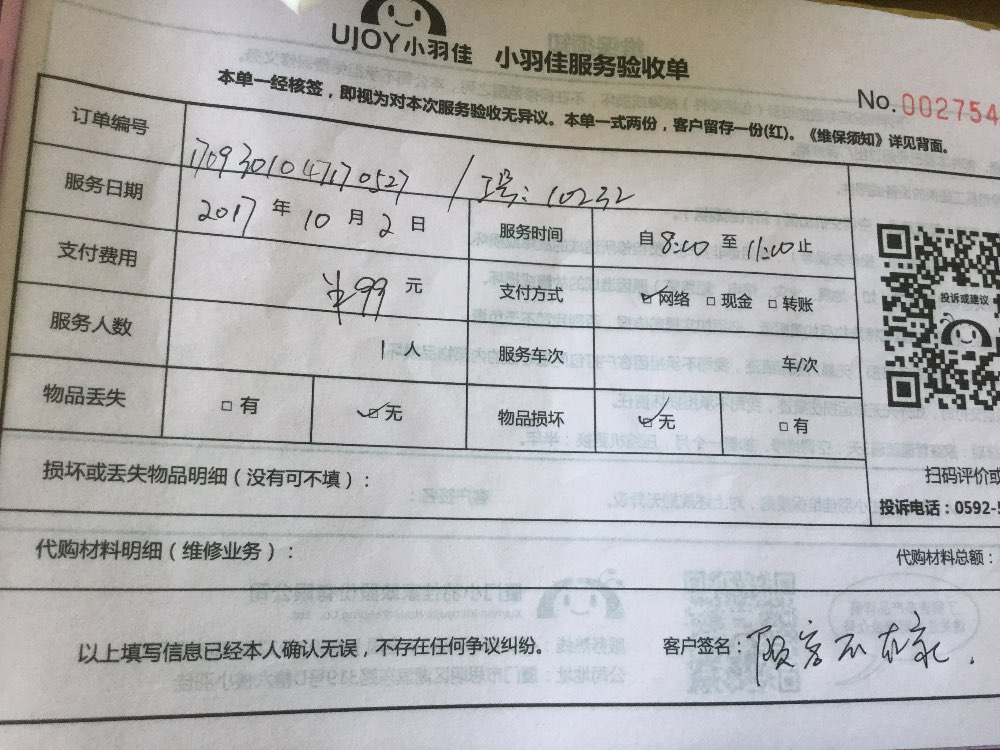 UJOY小羽佳 小羽佳服务验收单
本单一经核签，即视为对本次服务验收无异议。本单一式两份，客户留存一份(红)。《维保须知》详见背面。
No.002754
订单编号 / 工号：10232
服务日期 2017 年 10 月 2 日 服务时间 自 8:00 至 11:00 止
支付费用 ¥99 元 支付方式 ☑网络 □现金 □转账
服务人数 1 人 服务车次 车/次
物品丢失 □有 ☑无 物品损坏 ☑无 □有
投诉或建议
损坏或丢失物品明细（没有可不填）：
扫码评价或
投诉电话：0592-5
代购材料明细（维修业务）：
代购材料总额：
以上填写信息已经本人确认无误，不存在任何争议纠纷。
客户签名：顾客不在家.